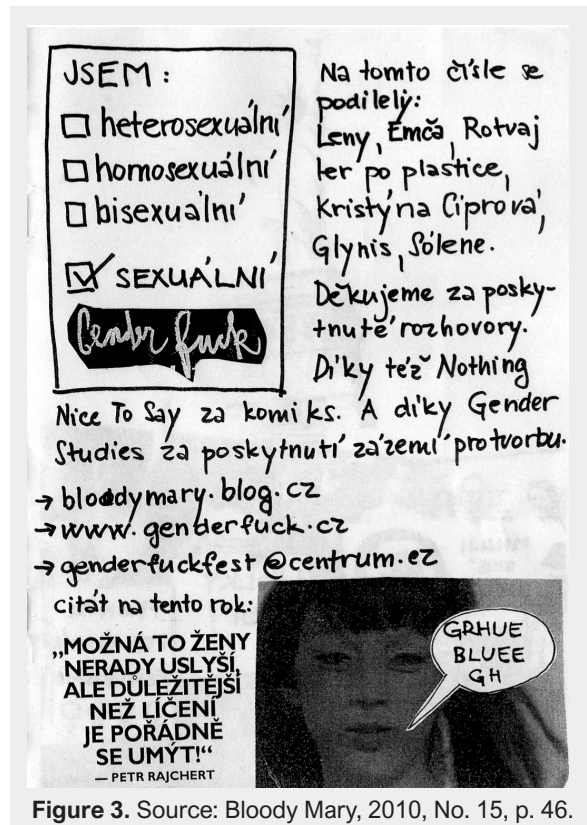 JSEM:
heterosexuální
homosexuální
bisexuální
SEXUÁLNÍ
Gender fuck
Na tomto čísle se
podílely:
Leny, Emča, Rotvaj
ler po plastice,
Kristýna Ciprová,
Glynis, Sólene.
Děkujeme za posky-
tnuté rozhovory.
Díky též Nothing
Nice To Say za komiks. A díky Gender
Studies za poskytnutí zázemí pro tvorbu.
→ bloodymary.blog.cz
→ www.genderfuck.cz
→ genderfuckfest@centrum.cz
citát na tento rok:
„MOŽNÁ TO ŽENY
NERADY USLYŠÍ,
ALE DŮLEŽITĚJŠÍ
NEŽ LÍČENÍ
JE POŘÁDNĚ
SE UMÝT!“
— PETR RAJCHERT
GRHUE
BLUEE
GH
Figure 3. Source: Bloody Mary, 2010, No. 15, p. 46.